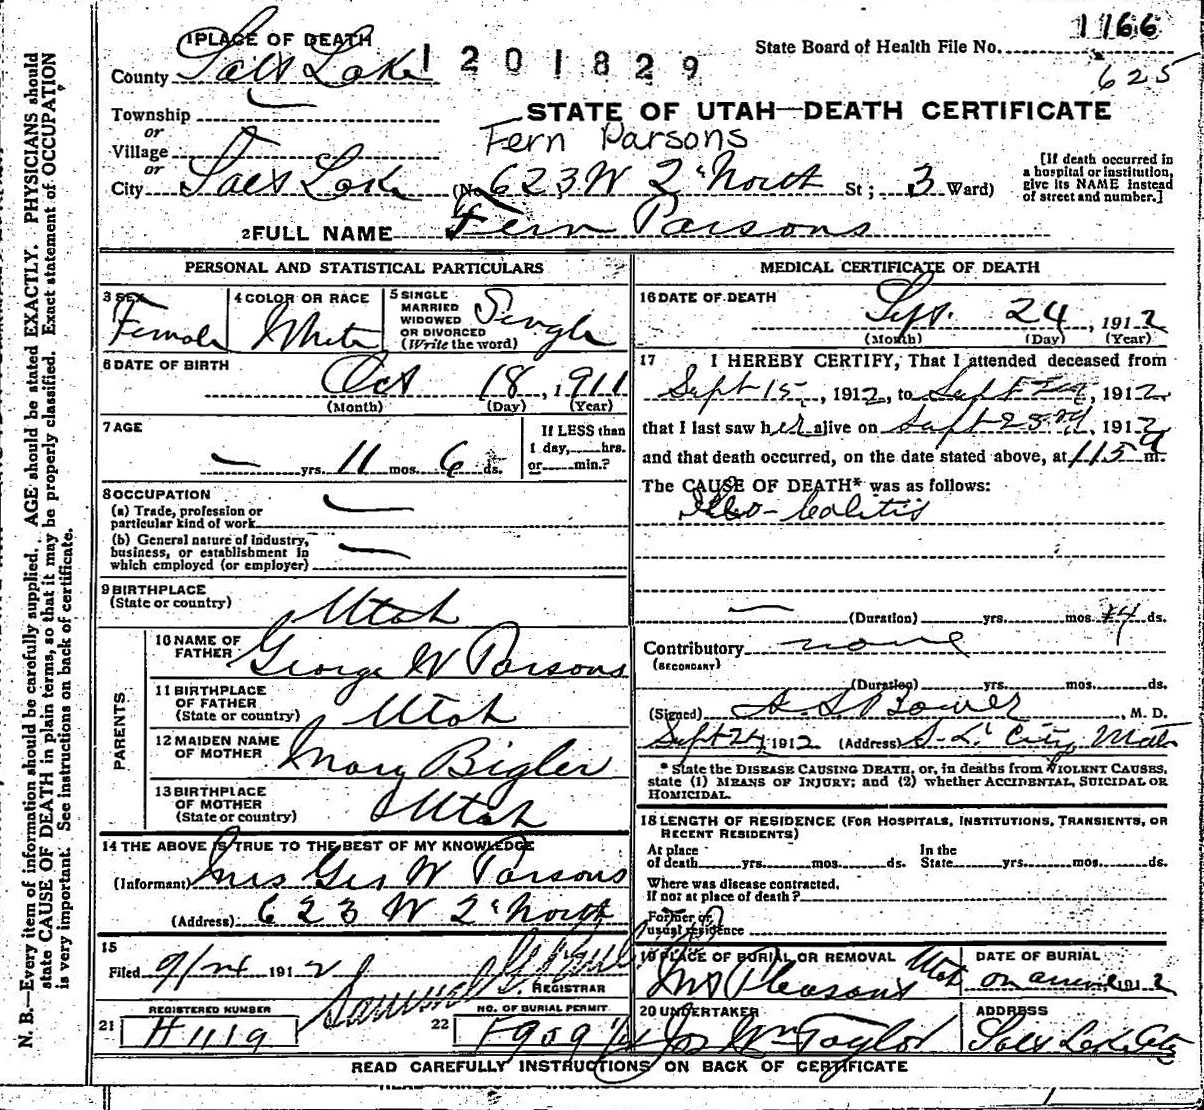 1166
625
1 PLACE OF DEATH
1201829
State Board of Health File No.
County Salt Lake
STATE OF UTAH—DEATH CERTIFICATE
Township
or
Village
or
Fern Parsons
City Salt Lake (No. 623 W 2' North St; 3 Ward)
[If death occurred in
a hospital or institution,
give its NAME instead
of street and number.]
2 FULL NAME Fern Parsons
PERSONAL AND STATISTICAL PARTICULARS
3 SEX Female
4 COLOR OR RACE White
5 SINGLE
MARRIED
WIDOWED
OR DIVORCED
(Write the word)
Single
6 DATE OF BIRTH
Oct 18, 1911
(Month) (Day) (Year)
7 AGE
— yrs. 11 mos. 6 ds.
If LESS than
1 day, hrs.
or min.?
8 OCCUPATION
(a) Trade, profession or
particular kind of work —
(b) General nature of industry,
business, or establishment in
which employed (or employer) —
9 BIRTHPLACE
(State or country) Utah
PARENTS
10 NAME OF
FATHER George W Parsons
11 BIRTHPLACE
OF FATHER
(State or country) Utah
12 MAIDEN NAME
OF MOTHER Mary Bigler
13 BIRTHPLACE
OF MOTHER
(State or country) Utah
14 THE ABOVE IS TRUE TO THE BEST OF MY KNOWLEDGE
(Informant) Mrs Geo W Parsons
(Address) 623 W 2' North
15
Filed 9/24 1912 Samuel G.
REGISTRAR
REGISTERED NUMBER
21 H1119
NO. OF BURIAL PERMIT
22 F909
MEDICAL CERTIFICATE OF DEATH
16 DATE OF DEATH
Sept. 24, 1912
(Month) (Day) (Year)
17 I HEREBY CERTIFY, That I attended deceased from
Sept 15, 1912, to Sept 24, 1912
that I last saw her alive on Sept , 1912
and that death occurred, on the date stated above, at 115 a m.
The CAUSE OF DEATH* was as follows:
Ileo-Colitis
— (Duration) yrs. mos. ds.
Contributory none
(SECONDARY)
(Duration) yrs. mos. ds.
(Signed) Bower, M. D.
Sept 24, 1912 (Address) S. L. City Utah
* State the DISEASE CAUSING DEATH, or, in deaths from VIOLENT CAUSES,
state (1) MEANS OF INJURY; and (2) whether ACCIDENTAL, SUICIDAL OR
HOMICIDAL.
18 LENGTH OF RESIDENCE (FOR HOSPITALS, INSTITUTIONS, TRANSIENTS, OR
RECENT RESIDENTS)
At place
of death yrs. mos. ds.
In the
State yrs. mos. ds.
Where was disease contracted,
if not at place of death?
Former or
usual residence
19 PLACE OF BURIAL OR REMOVAL
Mt Pleasant Utah
DATE OF BURIAL
on arrival 1912
20 UNDERTAKER
Jos Wm Taylor
ADDRESS
Salt Lake City
READ CAREFULLY INSTRUCTIONS ON BACK OF CERTIFICATE
N. B.—Every item of information should be carefully supplied. AGE should be stated EXACTLY. PHYSICIANS should
state CAUSE OF DEATH in plain terms, so that it may be properly classified. Exact statement of OCCUPATION
is very important. See instructions on back of certificate.